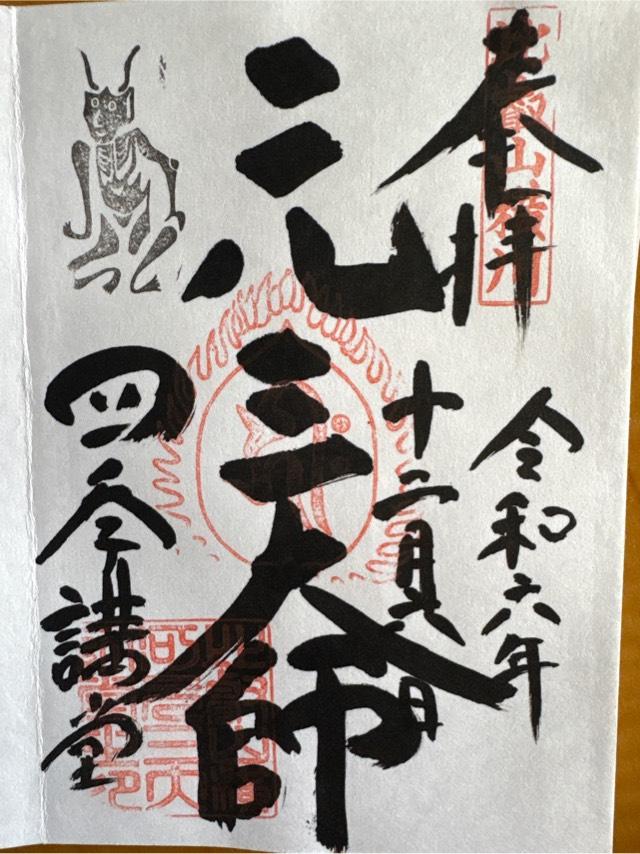 奉拝
比叡山横川
令和六年
十二月八日
元三大師
四季講堂